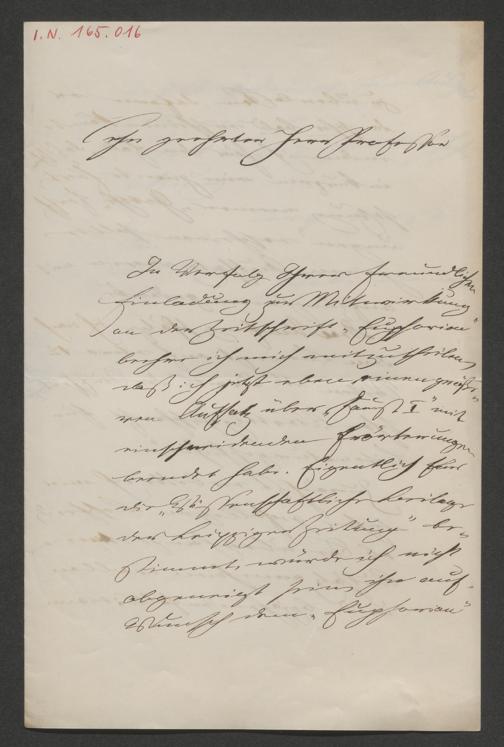 I.N. 165.016
Sehr geehrter Herr Professor
In Verfolg Ihrer freundlichen
Einladung zur Mitwirkung
an der Zeitschrift „Euphorion"
beehre ich mich mitzutheilen,
daß ich jetzt eben einen größe-
ren Aufsatz über „Faust I" mit
einschneidenden Erörterungen
beendet habe. Eigentlich für
die „Wissenschaftliche Beilage
der Leipziger Zeitung" be-
stimmt, würde ich nicht
abgeneigt sein, ihn auf
Wunsch dem „Euphorion"